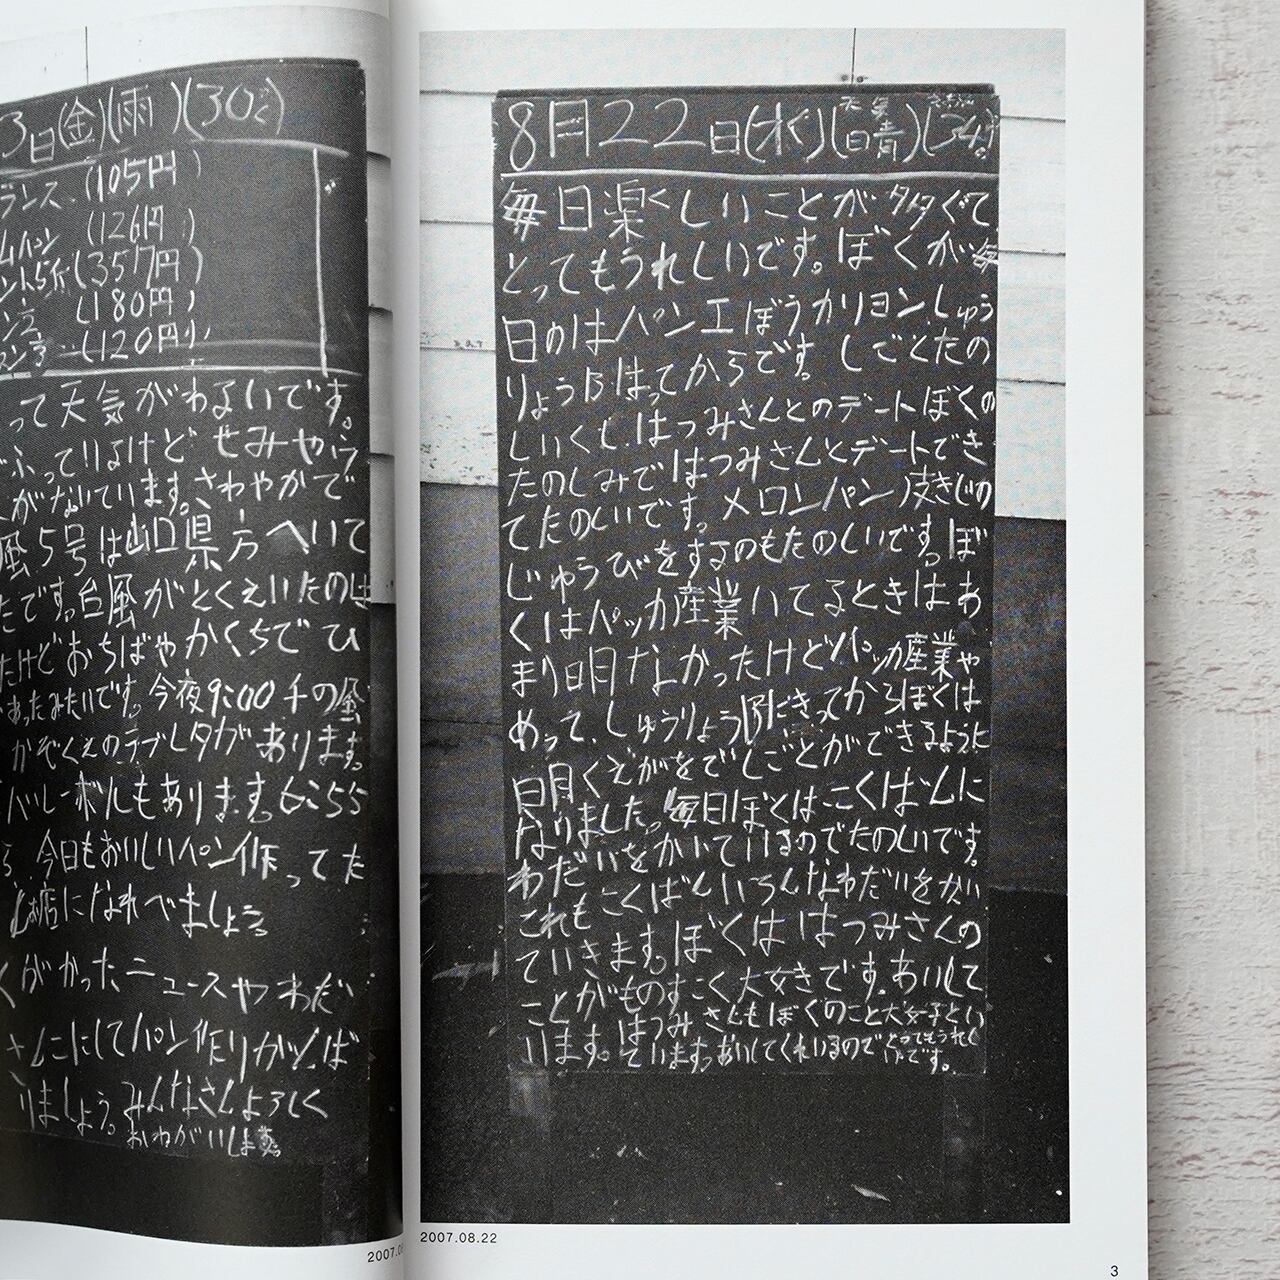 3日(金)(雨)(30℃)
ランス.(105円)
ムパン (126円)
(357円)
(180円)
(120円)
って天気がわるいです。
ふっているけど せみや
がないてります。さわやかで
風5号は山口県方へいて
たです。台風がとくえいたのは
たけどおちばやかくちでひ
あったみたいです。今夜9:00千の風
かぞくえのラブレタがあります。
バレーボルもあります。
今日もおいしいパン作ってた
お店になれべましょう
くがかったニュースやわだい
さんこにしてパン作りがんば
りましょう。みんなさんよろしく
おねがいします。
2007.0
8月22日(水)(天気晴)(34℃)
毎日楽くしいことがタタくて
とってもうれしいです。ぼくが毎
日のはパン工ぼうカリヨン.しゅう
りょうはってからです。しごとたの
しいくて.はつみさんとのデートぼくの
たのしみではつみさんとデートでき
てたのしいです。メロンパン皮きじの
じゅうびをするのもたのしいです。ぼ
くはパッカ産業いてるときはあ
まり明なかったけどパッカ産業や
めって.しゅうりょうにきってからぼくは
明くえがをでしごとができるように
なりました。毎日ぼとはこくはんに
わだいをかいているのでたのしいです。
これもこくばんいろんなわだいをかい
ていきます。ぼくははつみさんの
ことがものすこく大好きです。あいして
います。はつみさんもぼくのこと大好きとい
ていますっあいしてくれいるのでとってもうれし
いです。
2007.08.22
3